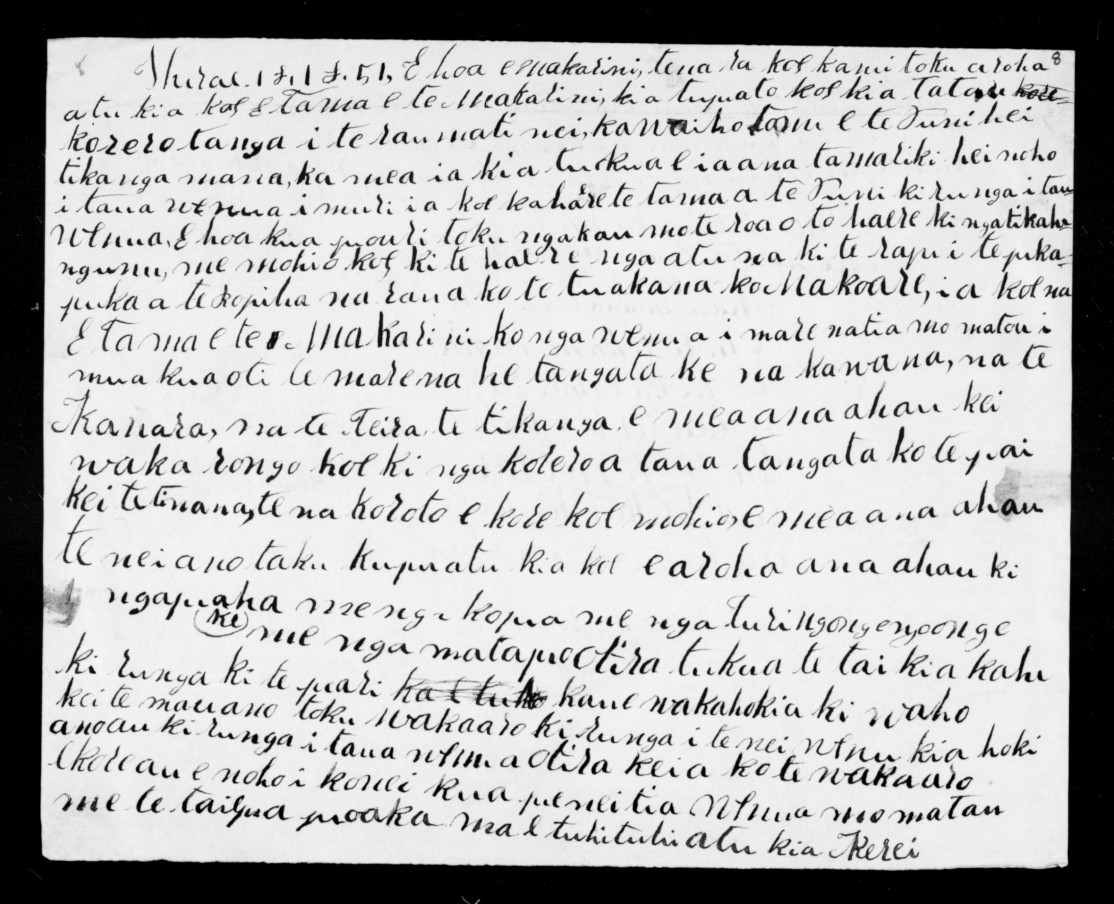 8
Hurae. 18. 1851, E hoa e makarini, tena ra koe kanui toku aroha
atu kia koe E Tama e te Makarini, kia tupato koe kia tatau kore
korero tanga i te raumati nei, kawaiho tonu e te Tuni hei
tikanga mana, ka mea ia kia tukua e ia ana tamariki hei noho
i tana wenua i muri ia koe kahaere te tama a te Tuni ki runga i tau
wenua, E hoa kua pouri toku ngakau mo te roa o to haere ki ngatikahu
ngunu, me mohio koe ki te haere nga atu na ki te rapu i te puka-
puka a te Ropiha na rana ko te tuakana ko Makoare, ia koe na
E Tama e te Makarini ko nga wenua i mare natia mo matou i
mua kua oti te marena he tangata ke na kawana, na te
Kanara, na te Teira, te tikanga, e mea ana ahau kei
waka rongo koe ki nga korero a taua tangata ko te pai
kei te tinana, te na koroto e kore koe mohio, e mea ana ahau
te nei ano taku kupu atu kia koe e aroha ana ahau ki
ngapuaha me nga kopua me nga Turingongengonge
(ke) me nga matapu Otira tukua te tai kia kahu
ki runga ki te pari kaua e wakahokia ki waho
kei te mau ano toku wakaaro ki runga i te nei wenu kia hoki
ano au ki runga i taua wenua Otira kei a ko te wakaaro
E kore au e noho i konei kua peneitia wenua mo matau
me te taipua poaka ma e tuhituhi atu kia Kerei